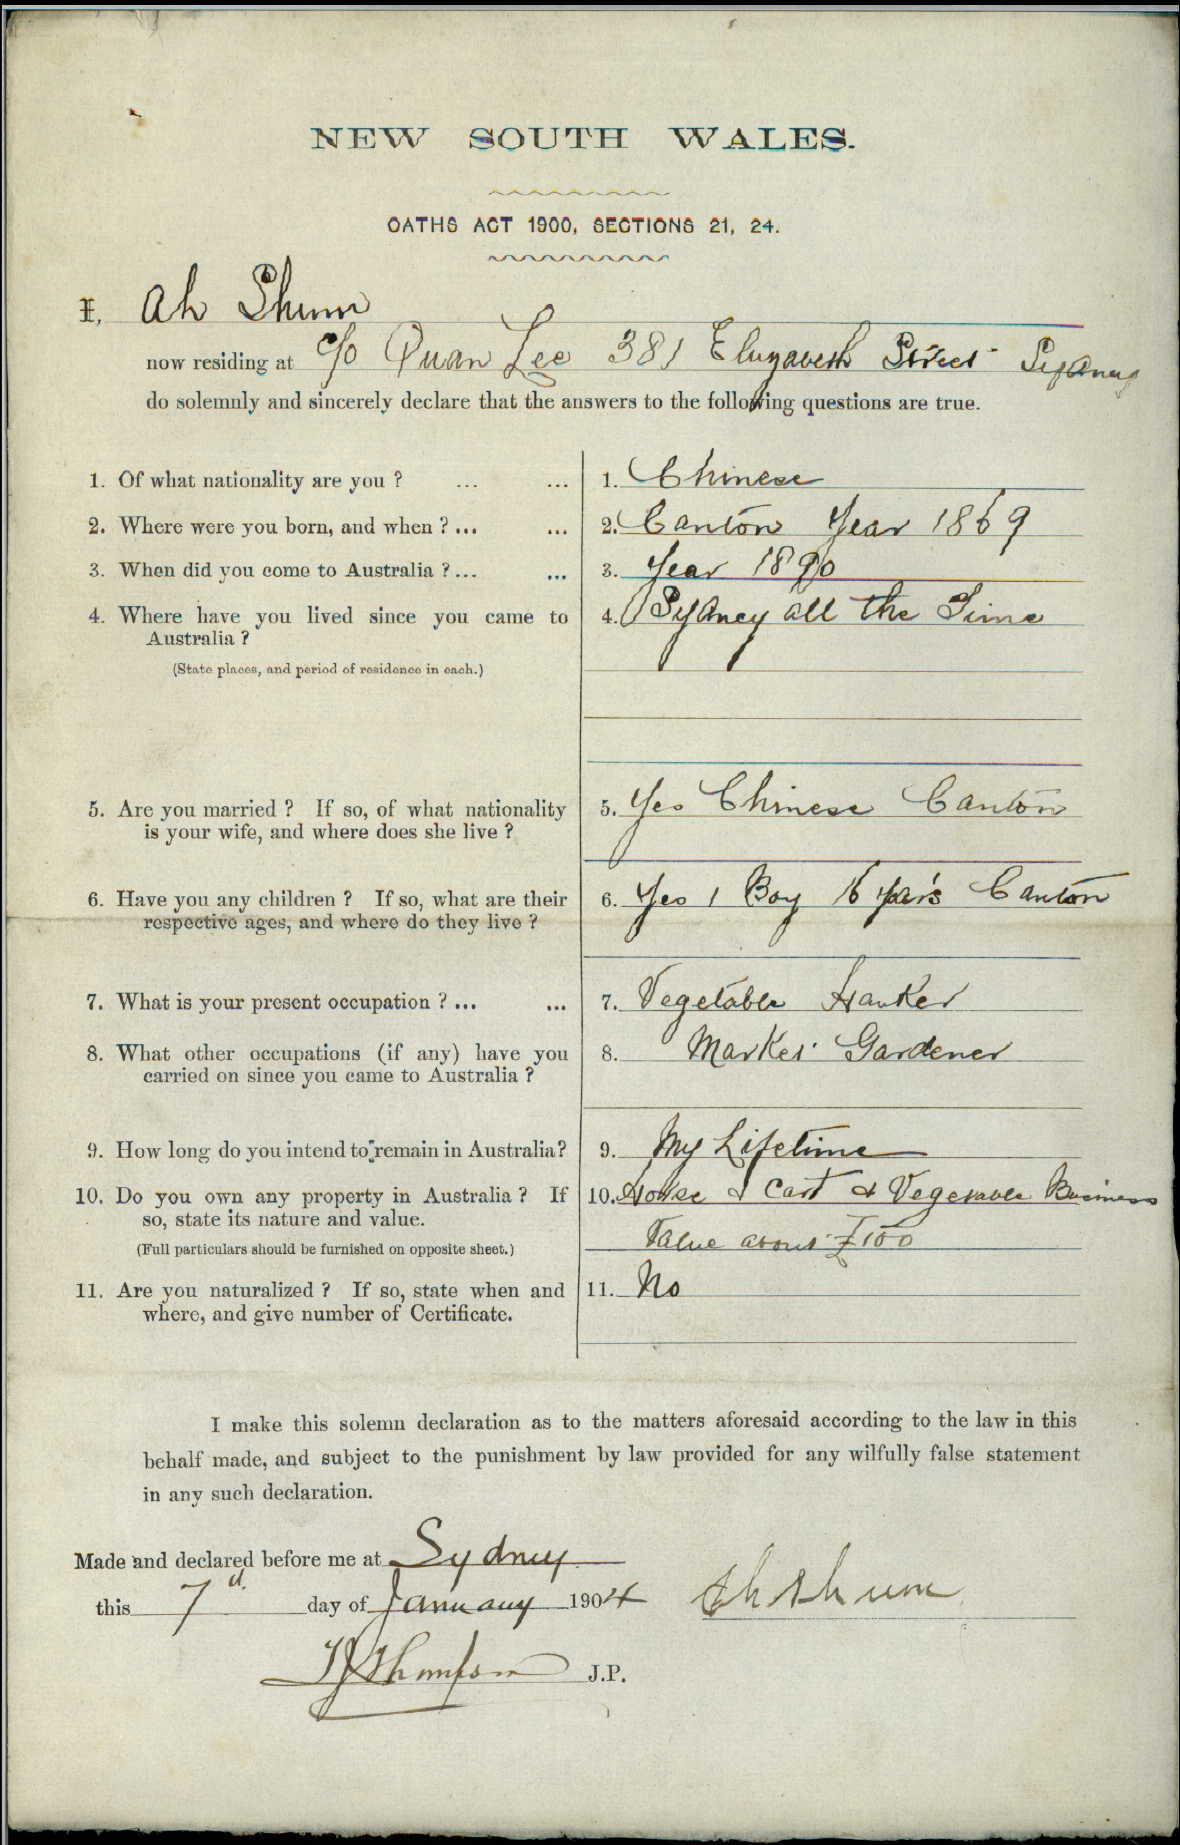 NEW SOUTH WALES.
OATHS ACT 1900, SECTIONS 21, 24.
I, Ah Shum
now residing at c/o Quan Lee 381 Eluzabeth Street Sydney
do solemnly and sincerely declare that the answers to the following questions are true.
1. Of what nationality are you ? ... ... 1. Chinese
2. Where were you born, and when ? ... ... 2. Canton Year 1869
3. When did you come to Australia ? ... ... 3. Year 1890
4. Where have you lived since you came to 4. Sydney all the Time
Australia ?
(State places, and period of residence in each.)
5. Are you married ? If so, of what nationality 5. Yes Chinese Canton
is your wife, and where does she live ?
6. Have you any children ? If so, what are their 6. Yes 1 Boy 16 years Canton
respective ages, and where do they live ?
7. What is your present occupation ? ... ... 7. Vegetable Hawker
8. What other occupations (if any) have you 8. Market Gardener
carried on since you came to Australia ?
9. How long do you intend to remain in Australia? 9. My Lifetime
10. Do you own any property in Australia ? If 10. Horse & Cart & Vegetable Business
so, state its nature and value.
(Full particulars should be furnished on opposite sheet.) Value about £100
11. Are you naturalized ? If so, state when and 11. No
where, and give number of Certificate.
I make this solemn declaration as to the matters aforesaid according to the law in this
behalf made, and subject to the punishment by law provided for any wilfully false statement
in any such declaration.
Made and declared before me at Sydney
this 7th day of January 1904 Ah Shum
Thompson J.P.